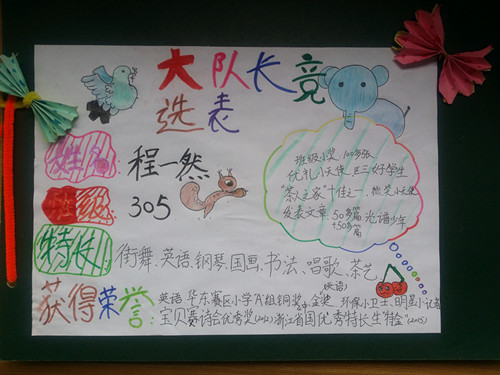 大队长竞
选表
姓名 程一然
班级 305
特长 街舞、英语、钢琴、国画、书法、唱歌、茶艺
班级小奖 100多张
优礼小天使 三好学生
"茶人之家"十佳之一 微笑小天使
发表文章 50多篇 光谱少年
+50多篇
获得荣誉: 英语 华东赛区小学A组铜奖 环保小卫士、明星小记者
宝贝赛诗会优秀奖(2012)浙江省国优秀特长生"特金"(2015)